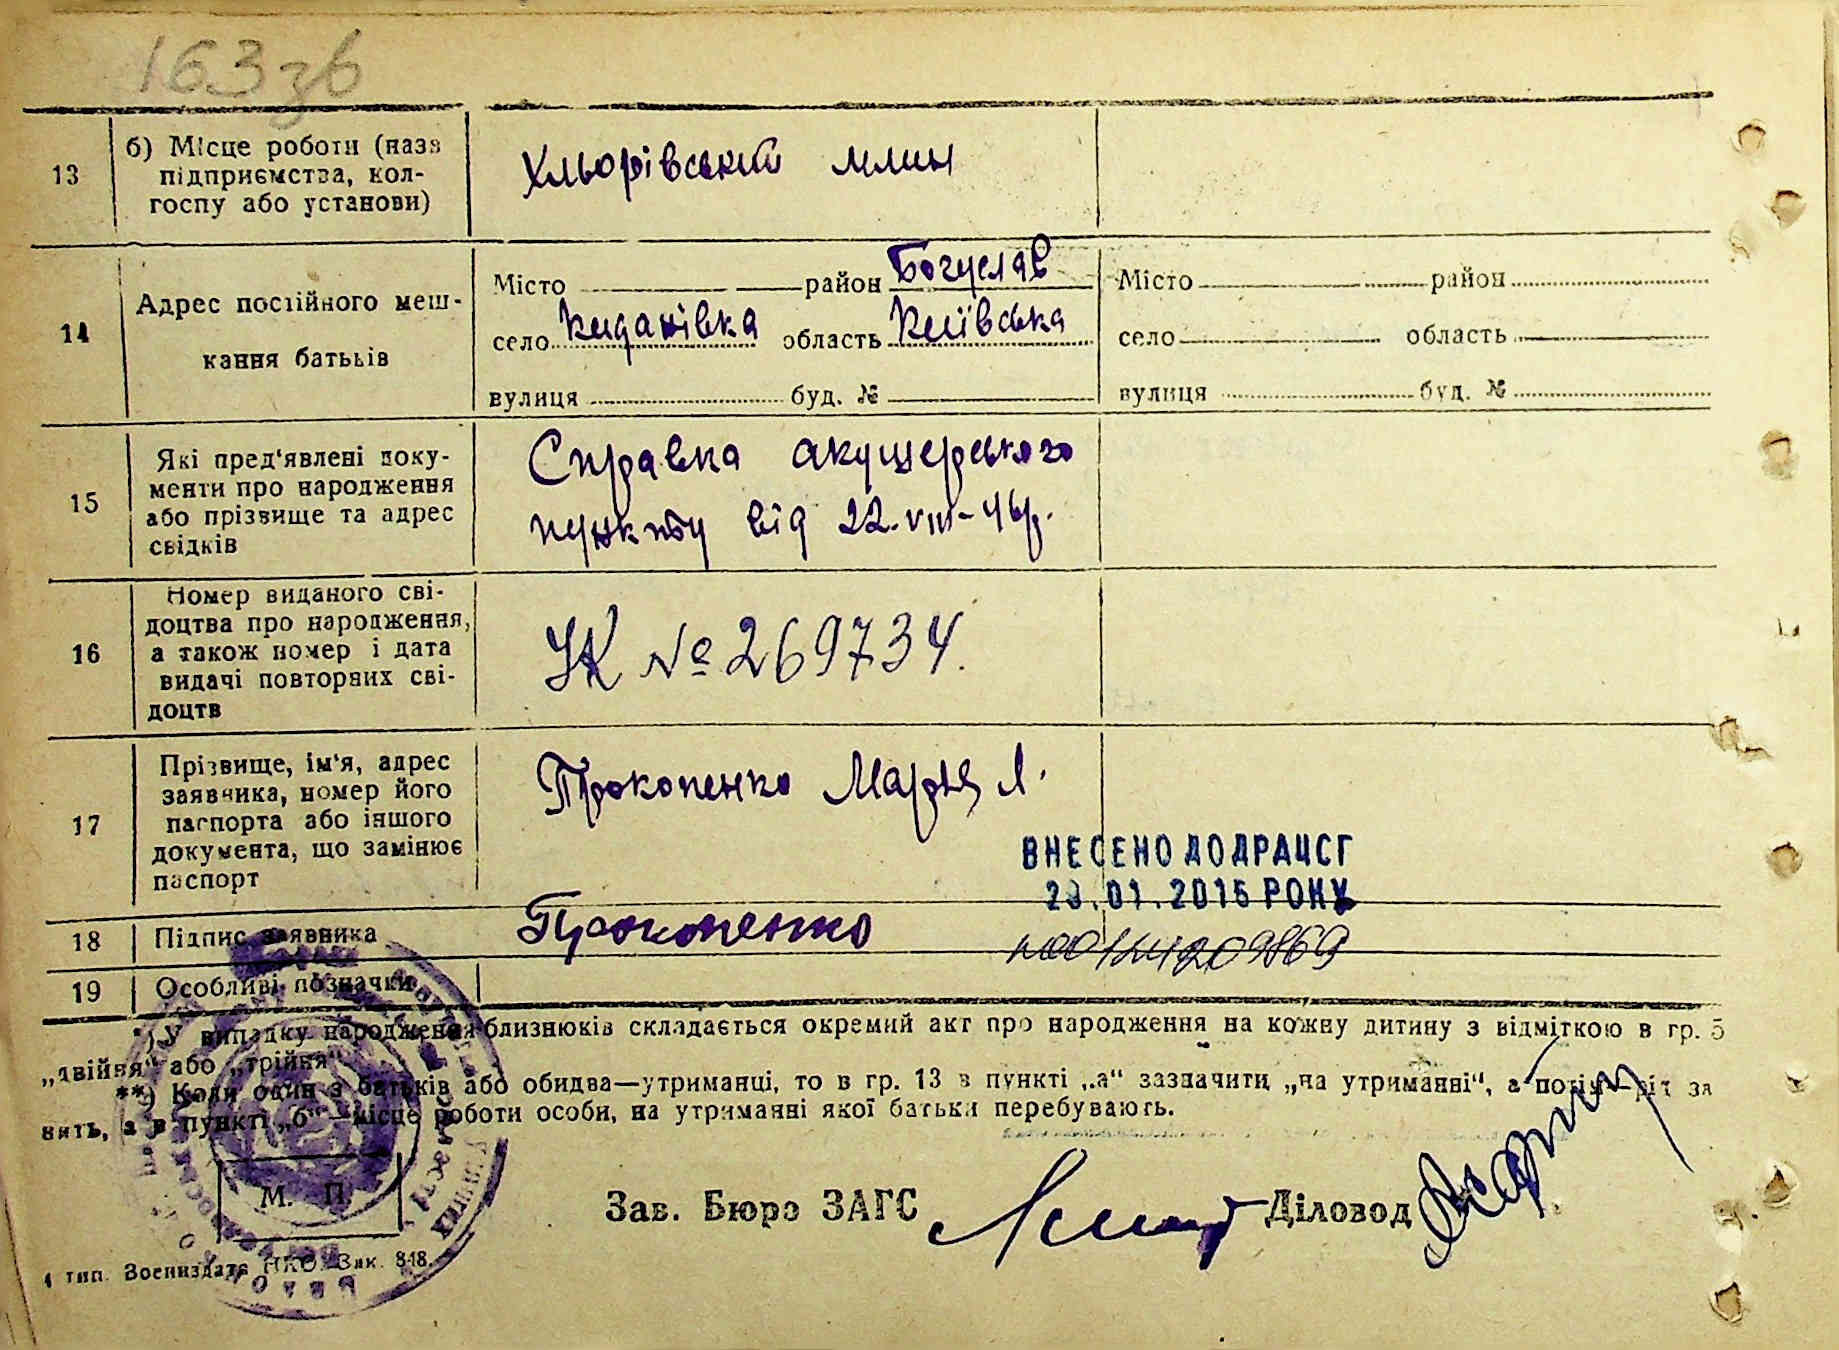 163 зв
13
б) Місце роботи (назв
підприємства, кол-
госпу або установи)
Хльорівський млин
14
Адрес постійного меш-
кання батьків
Місто район Богуслав
село Киданівка область Київська
вулиця буд. №
Місто район
село область
вулиця буд. №
15
Які пред'явлені доку-
менти про народження
або прізвище та адрес
свідків
Справка акушерського
пункту від 22.VIII-46р.
16
Номер виданого сві-
доцтва про народження,
а також номер і дата
видачі повторних сві-
доцтв
УК № 269734.
17
Прізвище, ім'я, адрес
заявника, номер його
паспорта або іншого
документа, що замінює
паспорт
Прокопенко Марія Л.
ВНЕСЕНО ДО ДРАЦСГ
.01.2015 РОКУ
18
Підпис заявника
Прокопенко
19
Особливі позначки
*) У випадку народження близнюків складається окремий акт про народження на кожну дитину з відміткою в гр. 5
„двійня" або „трійня"
**) Коли один з батьків або обидва—утриманці, то в гр. 13 в пункті „а" зазначити „на утриманні", а потім рід за
нять, а в пункті „б"—місце роботи особи, на утриманні якої батьки перебувають.
М. П.
Зав. Бюро ЗАГС Діловод
4 тип. Воениздата НКО. Зак. 848.